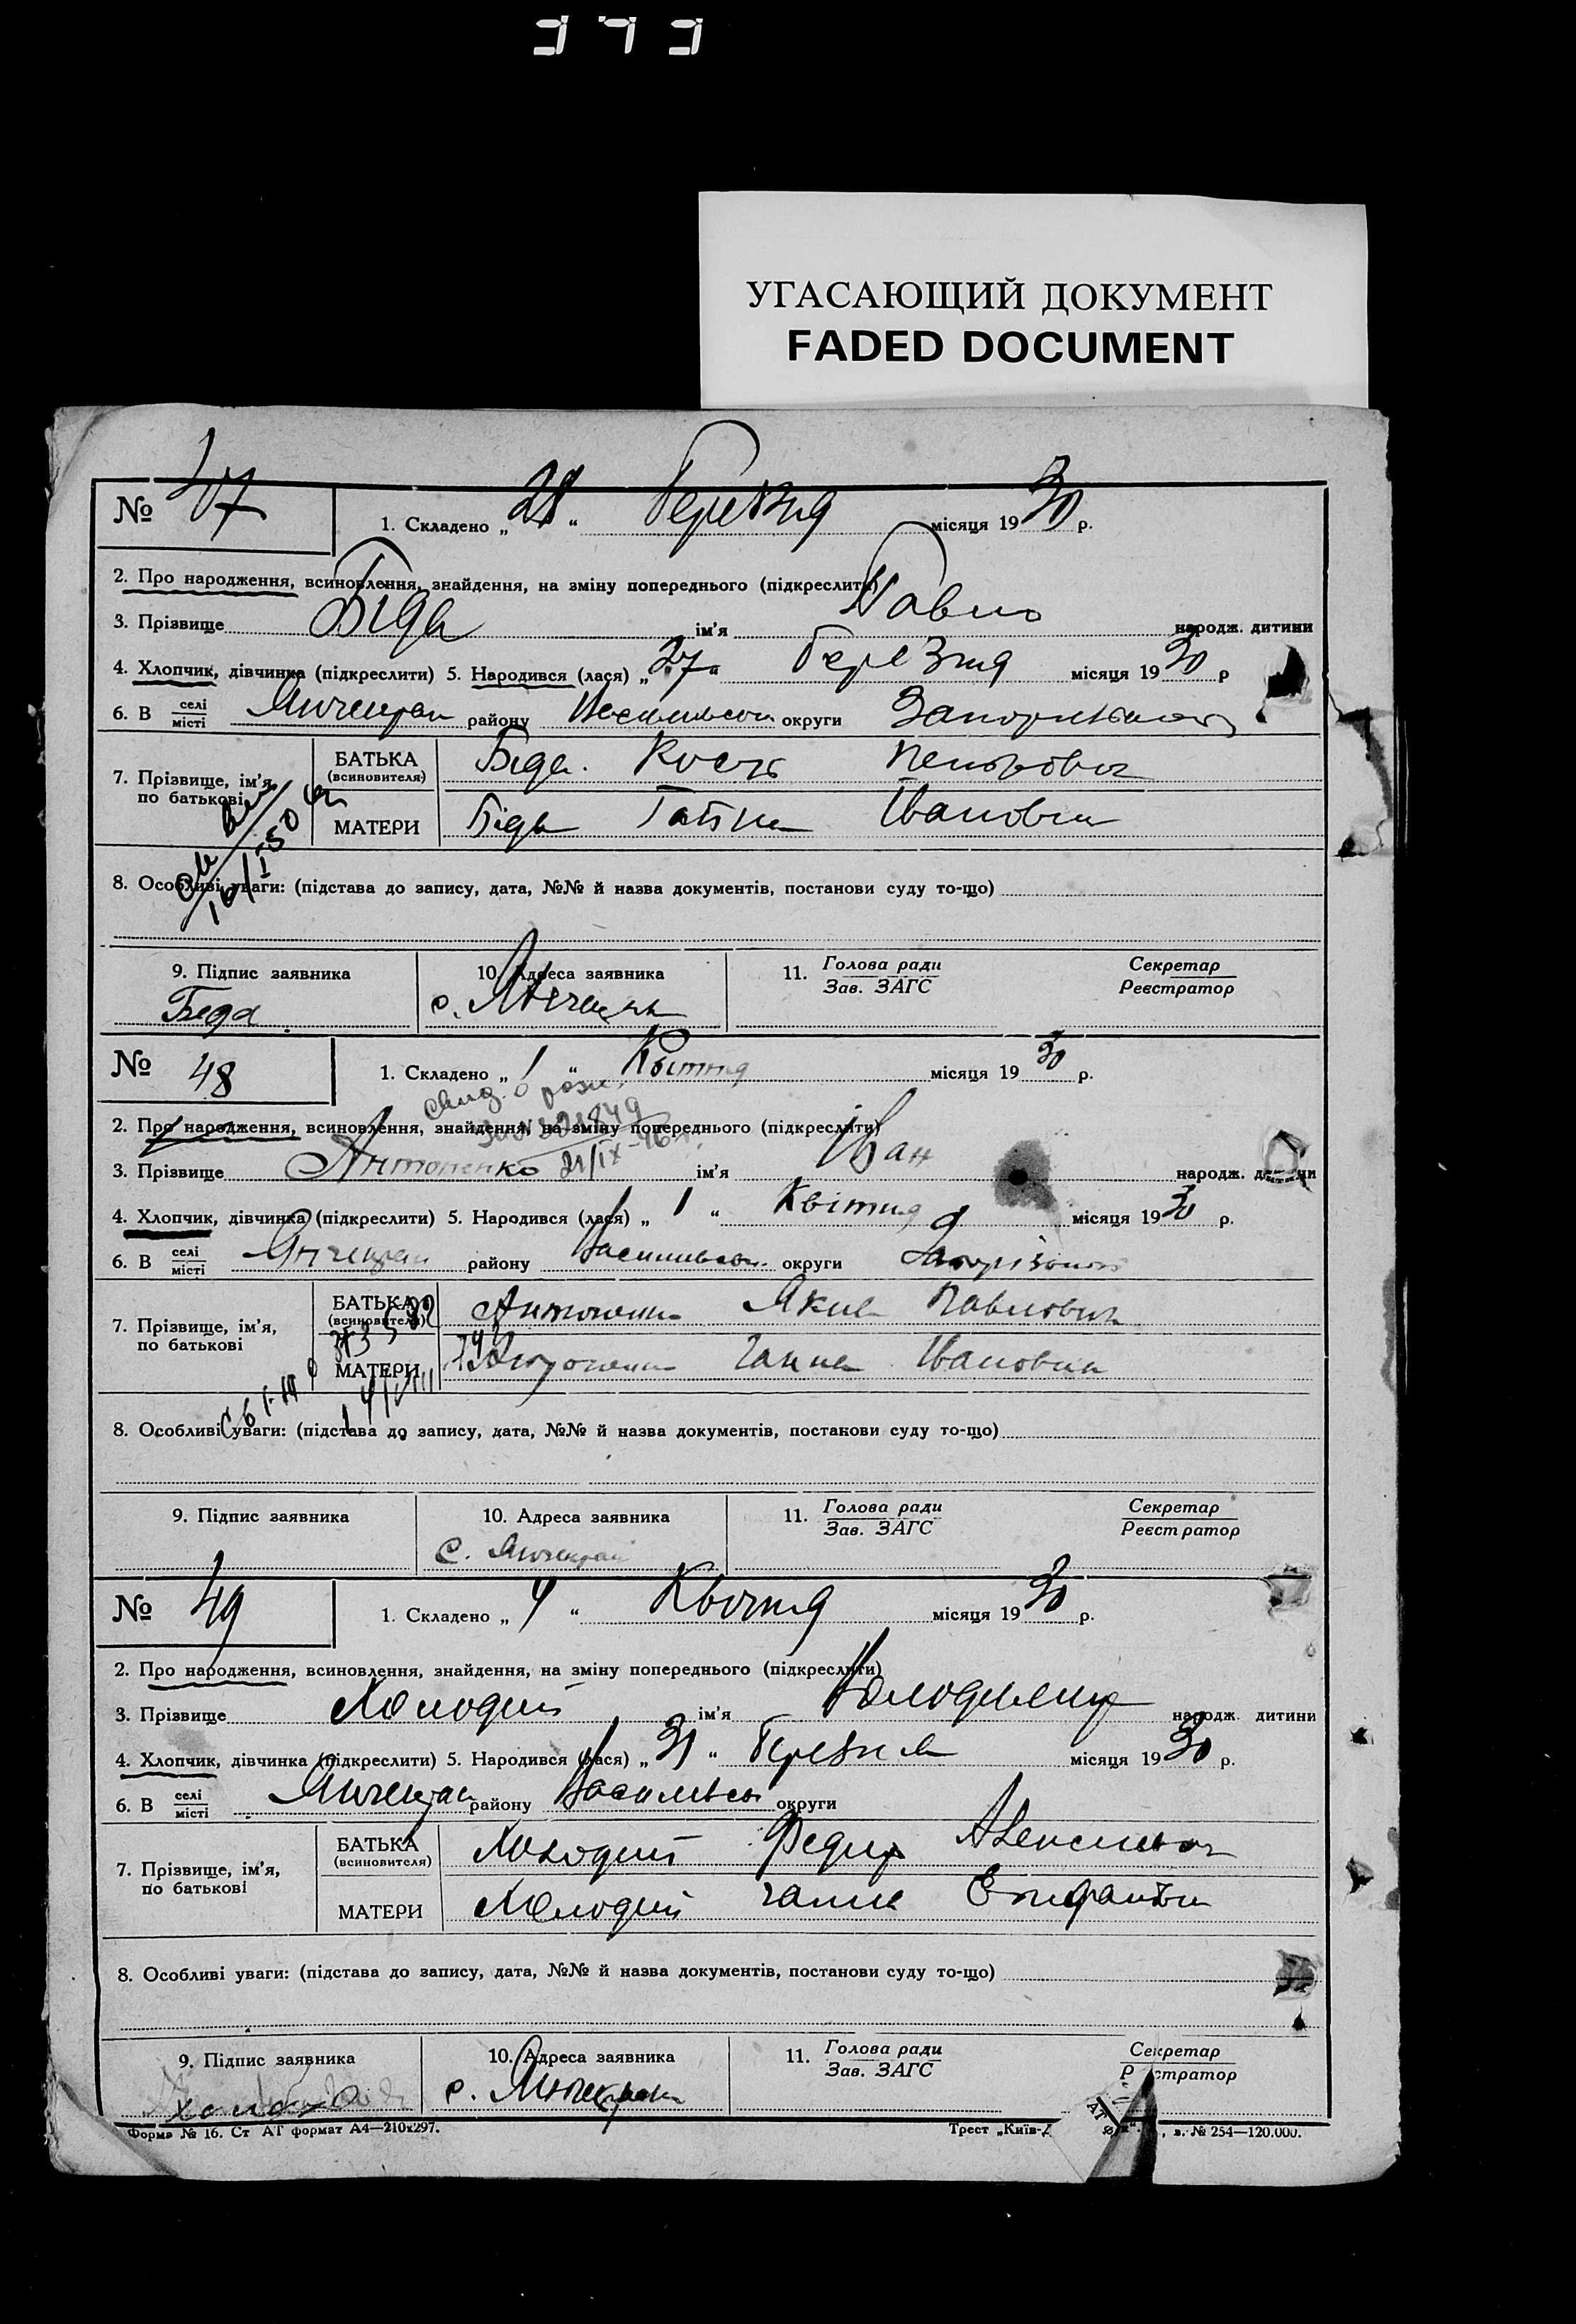 УГАСАЮЩИЙ ДОКУМЕНТ
FADED DOCUMENT
№ 47
1. Складено „ 28 “ Березня місяця 1930 р.
2. Про народження, всиновлення, знайдення, на зміну попереднього (підкреслити)
3. Прізвище Біда ім'я Павло народж. дитини
4. Хлопчик, дівчинка (підкреслити) 5. Народився (лася) „ 27 “ березня місяця 1930 р
6. В селі місті Янчекрак району Васильвськ округи
7. Прізвище, ім'я, по батькові
БАТЬКА (всиновителя) Біда Кость
МАТЕРИ Біда Ганна Івановна
16/I-50
8. Особливі уваги: (підстава до запису, дата, №№ й назва документів, постанови суду то-що)
9. Підпис заявника
10. Адреса заявника
11. Голова ради Зав. ЗАГС
Секретар Реєстратор
Беда
с. Янчекрак
№ 48
1. Складено „ 1 “ Квітня місяця 1930 р.
2. Про народження, всиновлення, знайдення, на зміну попереднього (підкреслити)
3. Прізвище Антоненко 21/IX-46 г. ім'я Іван народж. дитини
4. Хлопчик, дівчинка (підкреслити) 5. Народився (лася) „ 1 “ Квітня місяця 1930 р.
6. В селі місті Янчекрак району Васильвськ. округи
7. Прізвище, ім'я, по батькові
БАТЬКА (всиновителя) Антоненко Яків Павлович
МАТЕРИ Антоненко Ганна Івановна
8. Особливі уваги: (підстава до запису, дата, №№ й назва документів, постанови суду то-що)
9. Підпис заявника
10. Адреса заявника
11. Голова ради Зав. ЗАГС
Секретар Реєстратор
с. Янчекрак
№ 49
1. Складено „ 4 “ Квітня місяця 1930 р.
2. Про народження, всиновлення, знайдення, на зміну попереднього (підкреслити)
3. Прізвище Холодий ім'я Володимир народж. дитини
4. Хлопчик, дівчинка (підкреслити) 5. Народився (лася) „ 31 “ Березня місяця 1930 р.
6. В селі місті Янчекрак району Васильвськ округи
7. Прізвище, ім'я, по батькові
БАТЬКА (всиновителя) Холодий Федир
МАТЕРИ Холодий Ганна
8. Особливі уваги: (підстава до запису, дата, №№ й назва документів, постанови суду то-що)
9. Підпис заявника
10. Адреса заявника
11. Голова ради Зав. ЗАГС
Секретар
с. Янчекрак
Форма № 16. Ст АТ формат А4—210x297.
Трест „Київ- з. № 254—120.000.